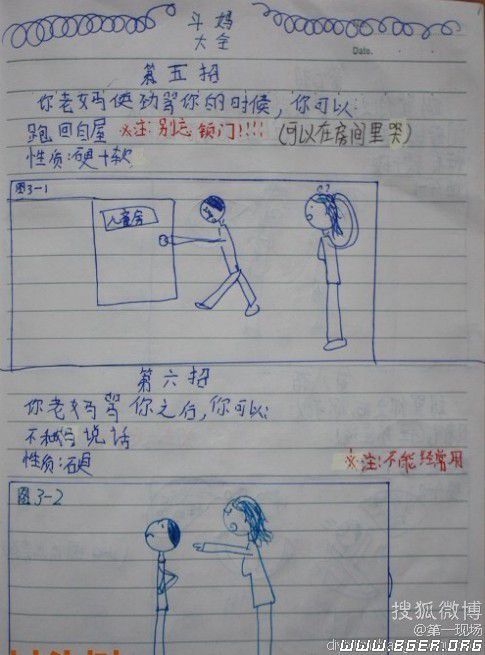 斗妈
大全
Date.
第五招
你老妈使劲骂你的时候，你可以：
跑回自屋 ※注：别忘锁门!!!! (可以在房间里哭)
性质：硬+软
图3-1
儿童房
第六招
你老妈骂你之后，你可以：
不和妈说话
性质：硬
※注：不能经常用
图3-2
搜狐微博
@第一现场
WWW.BGER.ORG